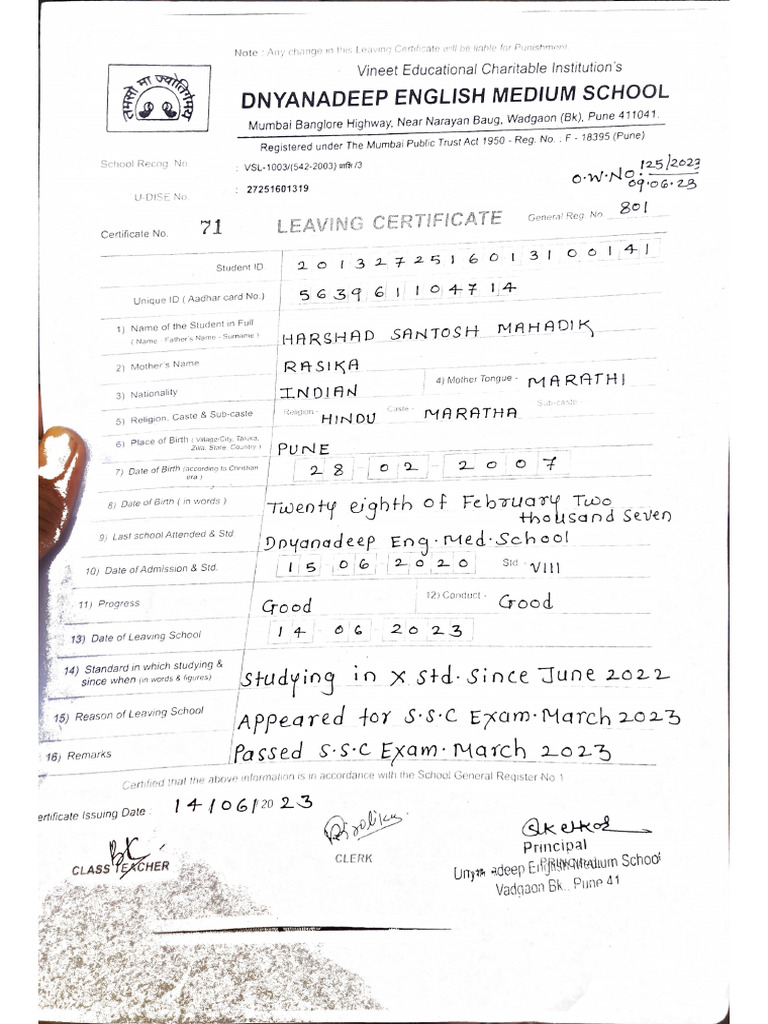 Note : Any change in this Leaving Certificate will be liable for Punishment.
Vineet Educational Charitable Institution's
तमसो मा ज्योतिर्गमय
DNYANADEEP ENGLISH MEDIUM SCHOOL
Mumbai Banglore Highway, Near Narayan Baug, Wadgaon (Bk), Pune 411041.
Registered under The Mumbai Public Trust Act 1950 - Reg. No. : F - 18395 (Pune)
School Recog. No. : VSL-1003/(542-2003) प्राशि/3
O.W.No. 125/2023
09.06.23
U-DISE No. : 27251601319
Certificate No. 71 LEAVING CERTIFICATE General Reg. No. 801
Student ID 2013272516013100141
Unique ID ( Aadhar card No.) 563961104714
1) Name of the Student in Full HARSHAD SANTOSH MAHADIK
( Name - Father's Name - Surname )
2) Mother's Name RASIKA
3) Nationality INDIAN 4) Mother Tongue - MARATHI
5) Religion, Caste & Sub-caste Religion - HINDU Caste - MARATHA Sub-caste -
6) Place of Birth ( Village/City, Taluka, Zilla, State, Country ) PUNE
7) Date of Birth (according to Christian era ) 28-02-2007
8) Date of Birth ( in words ) Twenty eighth of February Two
thousand seven
9) Last school Attended & Std. Dnyanadeep Eng. Med. School
10) Date of Admission & Std. 15 06 2020 Std - VIII
11) Progress Good 12) Conduct - Good
13) Date of Leaving School 14-06-2023
14) Standard in which studying & since when (in words & figures) Studying in X std. Since June 2022
15) Reason of Leaving School Appeared for S.S.C Exam. March 2023
16) Remarks Passed S.S.C Exam. March 2023
Certified that the above information is in accordance with the School General Register No 1
ertificate Issuing Date : 14/06/2023
CLASS TEACHER
CLERK
Principal
Dnyanadeep English Medium School
Vadgaon Bk., Pune 41